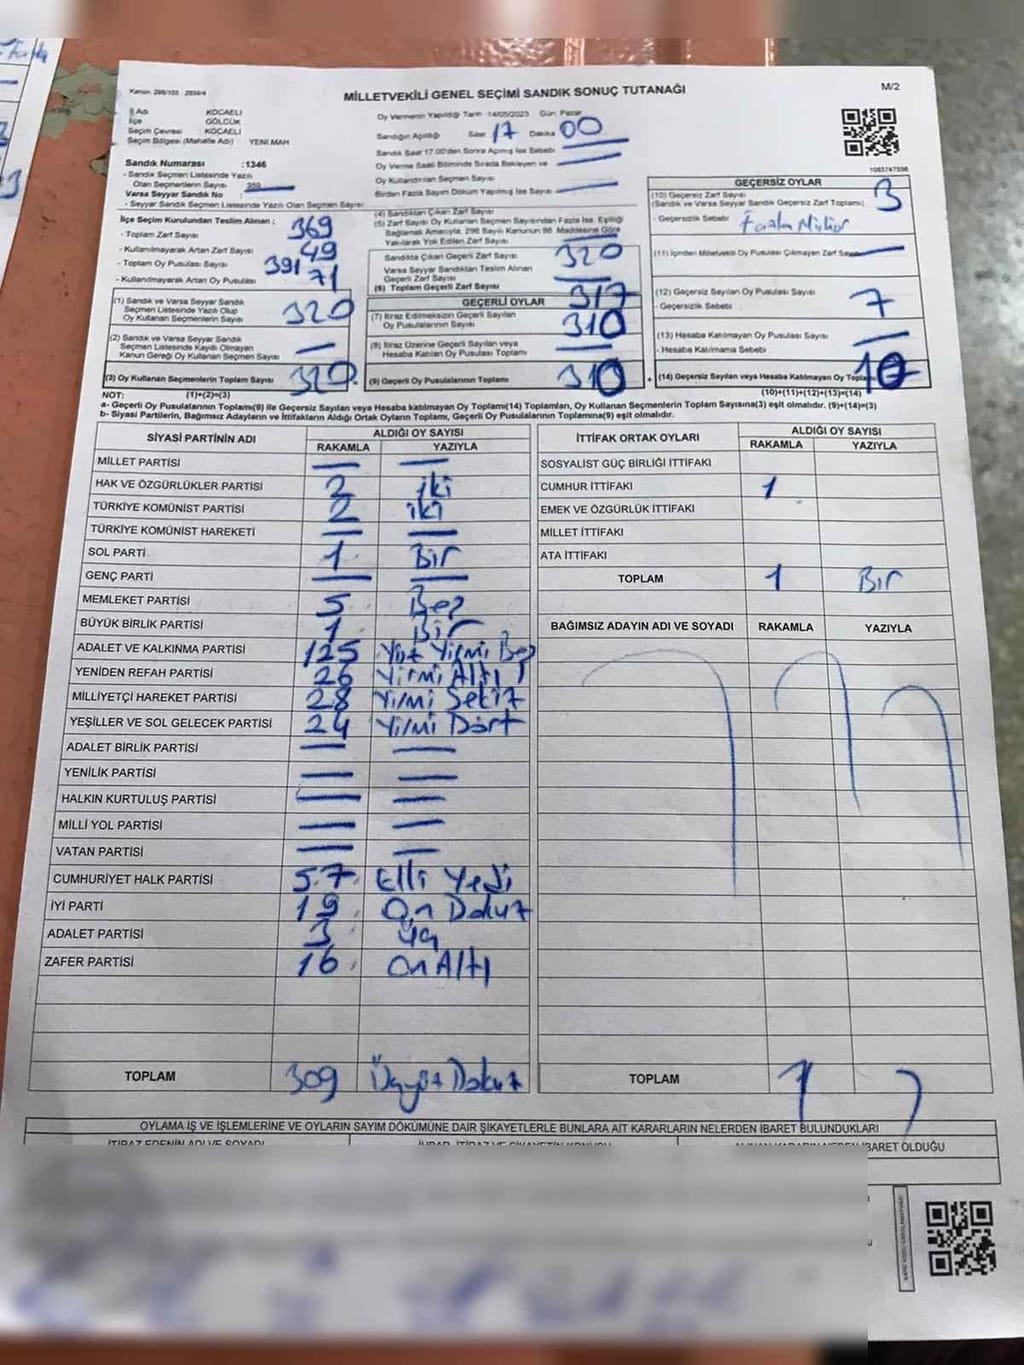 Kanun: 298/105 2839/4
MİLLETVEKİLİ GENEL SEÇİMİ SANDIK SONUÇ TUTANAĞI
M/2
İl Adı KOCAELİ
İlçe GÖLCÜK
Seçim Çevresi KOCAELİ
Seçim Bölgesi (Mahalle Adı) YENİ MAH
Sandık Numarası :1346
- Sandık Seçmen Listesinde Yazılı
Olan Seçmenlerin Sayısı
Varsa Seyyar Sandık No
- Seyyar Sandık Seçmen Listesinde Yazılı Olan Seçmen Sayısı
Oy Vermenin Yapıldığı Tarih :14/05/2023 Gün: Pazar
Sandığın Açıldığı Saat 17 Dakika 00
Sandık Saat 17.00'den Sonra Açılmış İse Sebebi
Oy Verme Saati Bitiminde Sırada Bekleyen ve
Oy Kullandırılan Seçmen Sayısı
Birden Fazla Sayım Döküm Yapılmış İse Sayısı
İlçe Seçim Kurulundan Teslim Alınan ;
- Toplam Zarf Sayısı 369
- Kullanılmayarak Artan Zarf Sayısı 49
- Toplam Oy Pusulası Sayısı 391
- Kullanılmayarak Artan Oy Pusulası 71
(1) Sandık ve Varsa Seyyar Sandık
Seçmen Listesinde Yazılı Olup
Oy Kullanan Seçmenlerin Sayısı 320
(2) Sandık ve Varsa Seyyar Sandık
Seçmen Listesinde Kayıtlı Olmayan
Kanun Gereği Oy Kullanan Seçmen Sayısı
(3) Oy Kullanan Seçmenlerin Toplam Sayısı 320
(1)+(2)=(3)
(4) Sandıktan Çıkan Zarf Sayısı
(5) Zarf Sayısı Oy Kullanan Seçmen Sayısından Fazla İse, Eşitliği
Sağlamak Amacıyla, 298 Sayılı Kanunun 98. Maddesine Göre
Yakılarak Yok Edilen Zarf Sayısı
Sandıkta Çıkan Geçerli Zarf Sayısı 320
Varsa Seyyar Sandıktan Teslim Alınan
Geçerli Zarf Sayısı
(6) Toplam Geçerli Zarf Sayısı 317
GEÇERLİ OYLAR
(7) İtiraz Edilmeksizin Geçerli Sayılan
Oy Pusulalarının Sayısı 310
(8) İtiraz Üzerine Geçerli Sayılan veya
Hesaba Katılan Oy Pusulası Toplamı
(9) Geçerli Oy Pusulalarının Toplamı 310
GEÇERSİZ OYLAR
(10) Geçersiz Zarf Sayısı 3
(Sandık ve Varsa Seyyar Sandık Geçersiz Zarf Toplamı)
- Geçersizlik Sebebi Fazla Mühür
(11) İçinden Milletvekili Oy Pusulası Çıkmayan Zarf Sayısı
(12) Geçersiz Sayılan Oy Pusulası Sayısı 7
- Geçersizlik Sebebi
(13) Hesaba Katılmayan Oy Pusulası Sayısı
- Hesaba Katılmama Sebebi
+ (14) Geçersiz Sayılan veya Hesaba Katılmayan Oy Toplamı 10
(10)+(11)+(12)+(13)=(14)
NOT:
a- Geçerli Oy Pusulalarının Toplamı(9) ile Geçersiz Sayılan veya Hesaba katılmayan Oy Toplamı(14) Toplamları, Oy Kullanan Seçmenlerin Toplam Sayısına(3) eşit olmalıdır. (9)+(14)=(3)
b- Siyasi Partilerin, Bağımsız Adayların ve İttifakların Aldığı Ortak Oyların Toplamı, Geçerli Oy Pusulalarının Toplamına(9) eşit olmalıdır.
SİYASİ PARTİNİN ADI ALDIĞI OY SAYISI
RAKAMLA YAZIYLA
MİLLET PARTİSİ
HAK VE ÖZGÜRLÜKLER PARTİSİ 2 iki
TÜRKİYE KOMÜNİST PARTİSİ 2 iki
TÜRKİYE KOMÜNİST HAREKETİ
SOL PARTİ 1 Bir
GENÇ PARTİ
MEMLEKET PARTİSİ 5 Beş
BÜYÜK BİRLİK PARTİSİ 1 Bir
ADALET VE KALKINMA PARTİSİ 125 Yüz Yirmi Beş
YENİDEN REFAH PARTİSİ 26 Yirmi Altı
MİLLİYETÇİ HAREKET PARTİSİ 28 Yirmi Sekiz
YEŞİLLER VE SOL GELECEK PARTİSİ 24 Yirmi Dört
ADALET BİRLİK PARTİSİ
YENİLİK PARTİSİ
HALKIN KURTULUŞ PARTİSİ
MİLLİ YOL PARTİSİ
VATAN PARTİSİ
CUMHURİYET HALK PARTİSİ 57 Elli Yedi
İYİ PARTİ 19 On Dokuz
ADALET PARTİSİ 3 üç
ZAFER PARTİSİ 16 On Altı
TOPLAM 309 Üçyüz Dokuz
İTTİFAK ORTAK OYLARI ALDIĞI OY SAYISI
RAKAMLA YAZIYLA
SOSYALİST GÜÇ BİRLİĞİ İTTİFAKI
CUMHUR İTTİFAKI 1
EMEK VE ÖZGÜRLÜK İTTİFAKI
MİLLET İTTİFAKI
ATA İTTİFAKI
TOPLAM 1 Bir
BAĞIMSIZ ADAYIN ADI VE SOYADI RAKAMLA YAZIYLA
TOPLAM
OYLAMA İŞ VE İŞLEMLERİNE VE OYLARIN SAYIM DÖKÜMÜNE DAİR ŞİKAYETLERLE BUNLARA AİT KARARLARIN NELERDEN İBARET BULUNDUKLARI
İTİRAZ EDENİN ADI VE SOYADI
İBARET OLDUĞU